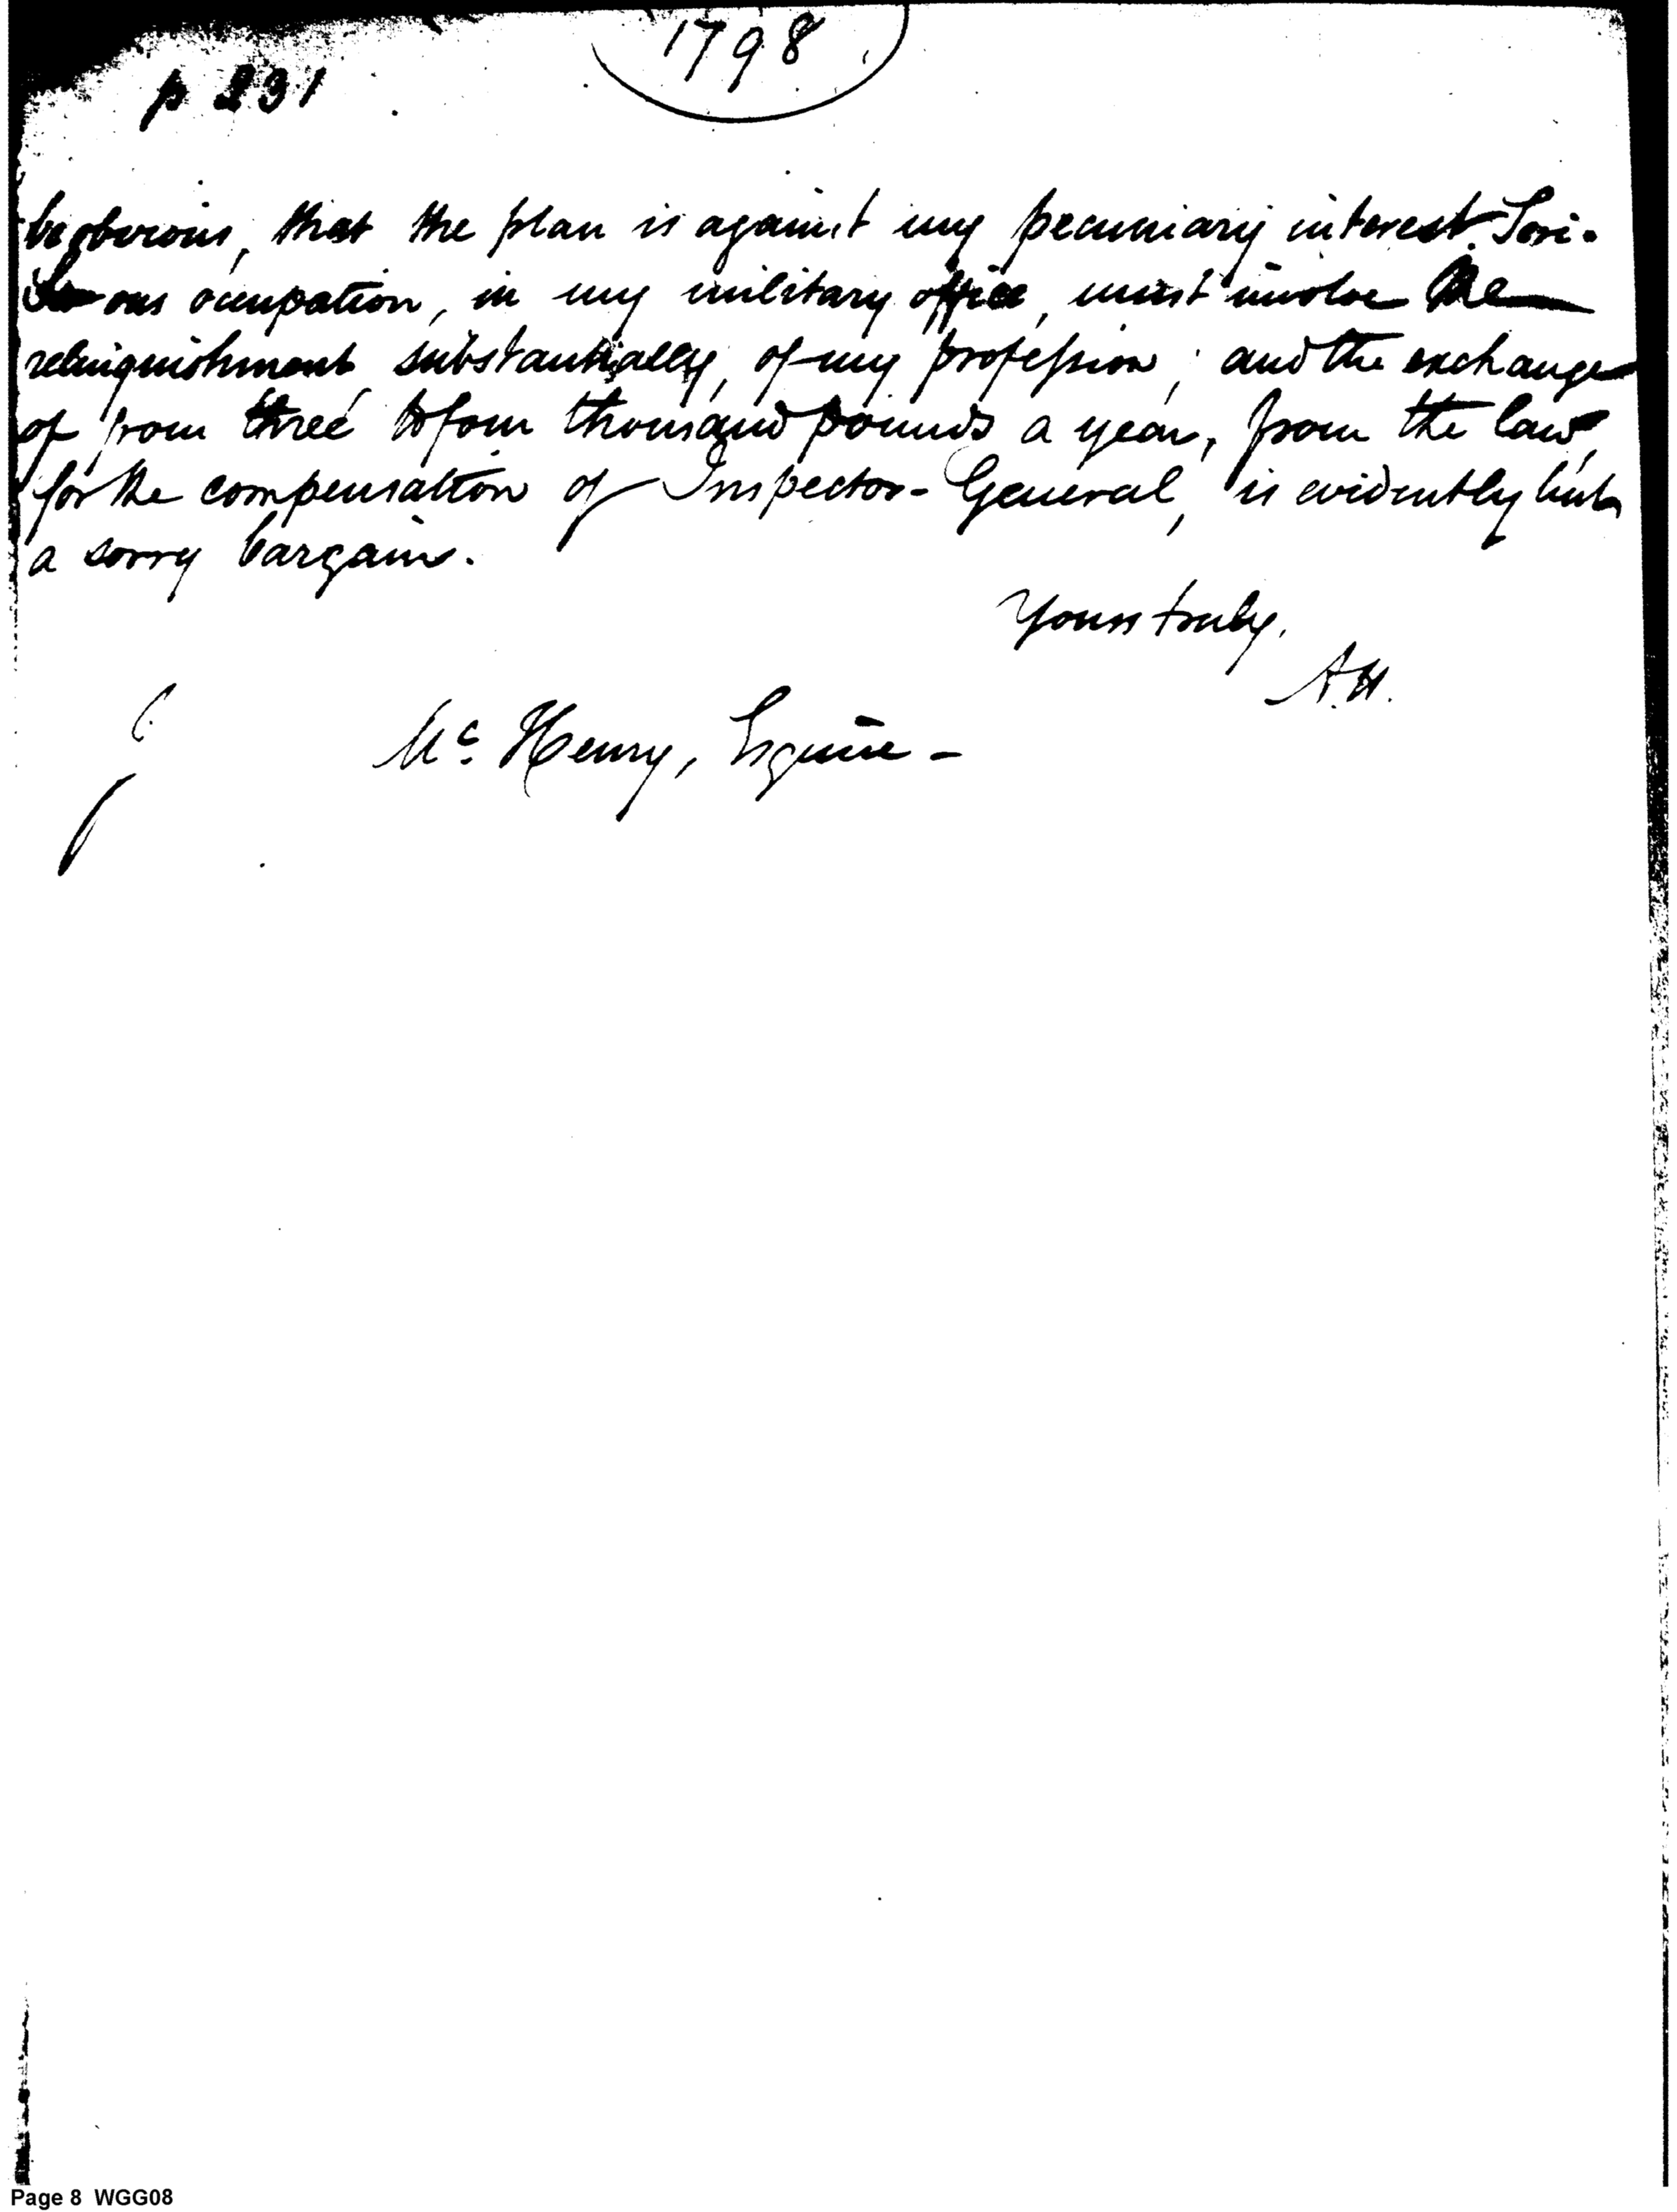 1798
p 231
be obvious, that the plan is against my pecuniary interest. Seri-
ous occupation, in my military office, must involve the
relinquishment, substantially, of my profession; and the exchange
of from three to four thousand pounds a year, from the law,
for the compensation of Inspector-General, is evidently but
a sorry bargain.
Yours truly,
A.H.
Mc. Henry, Esquire -
Page 8 WGG08